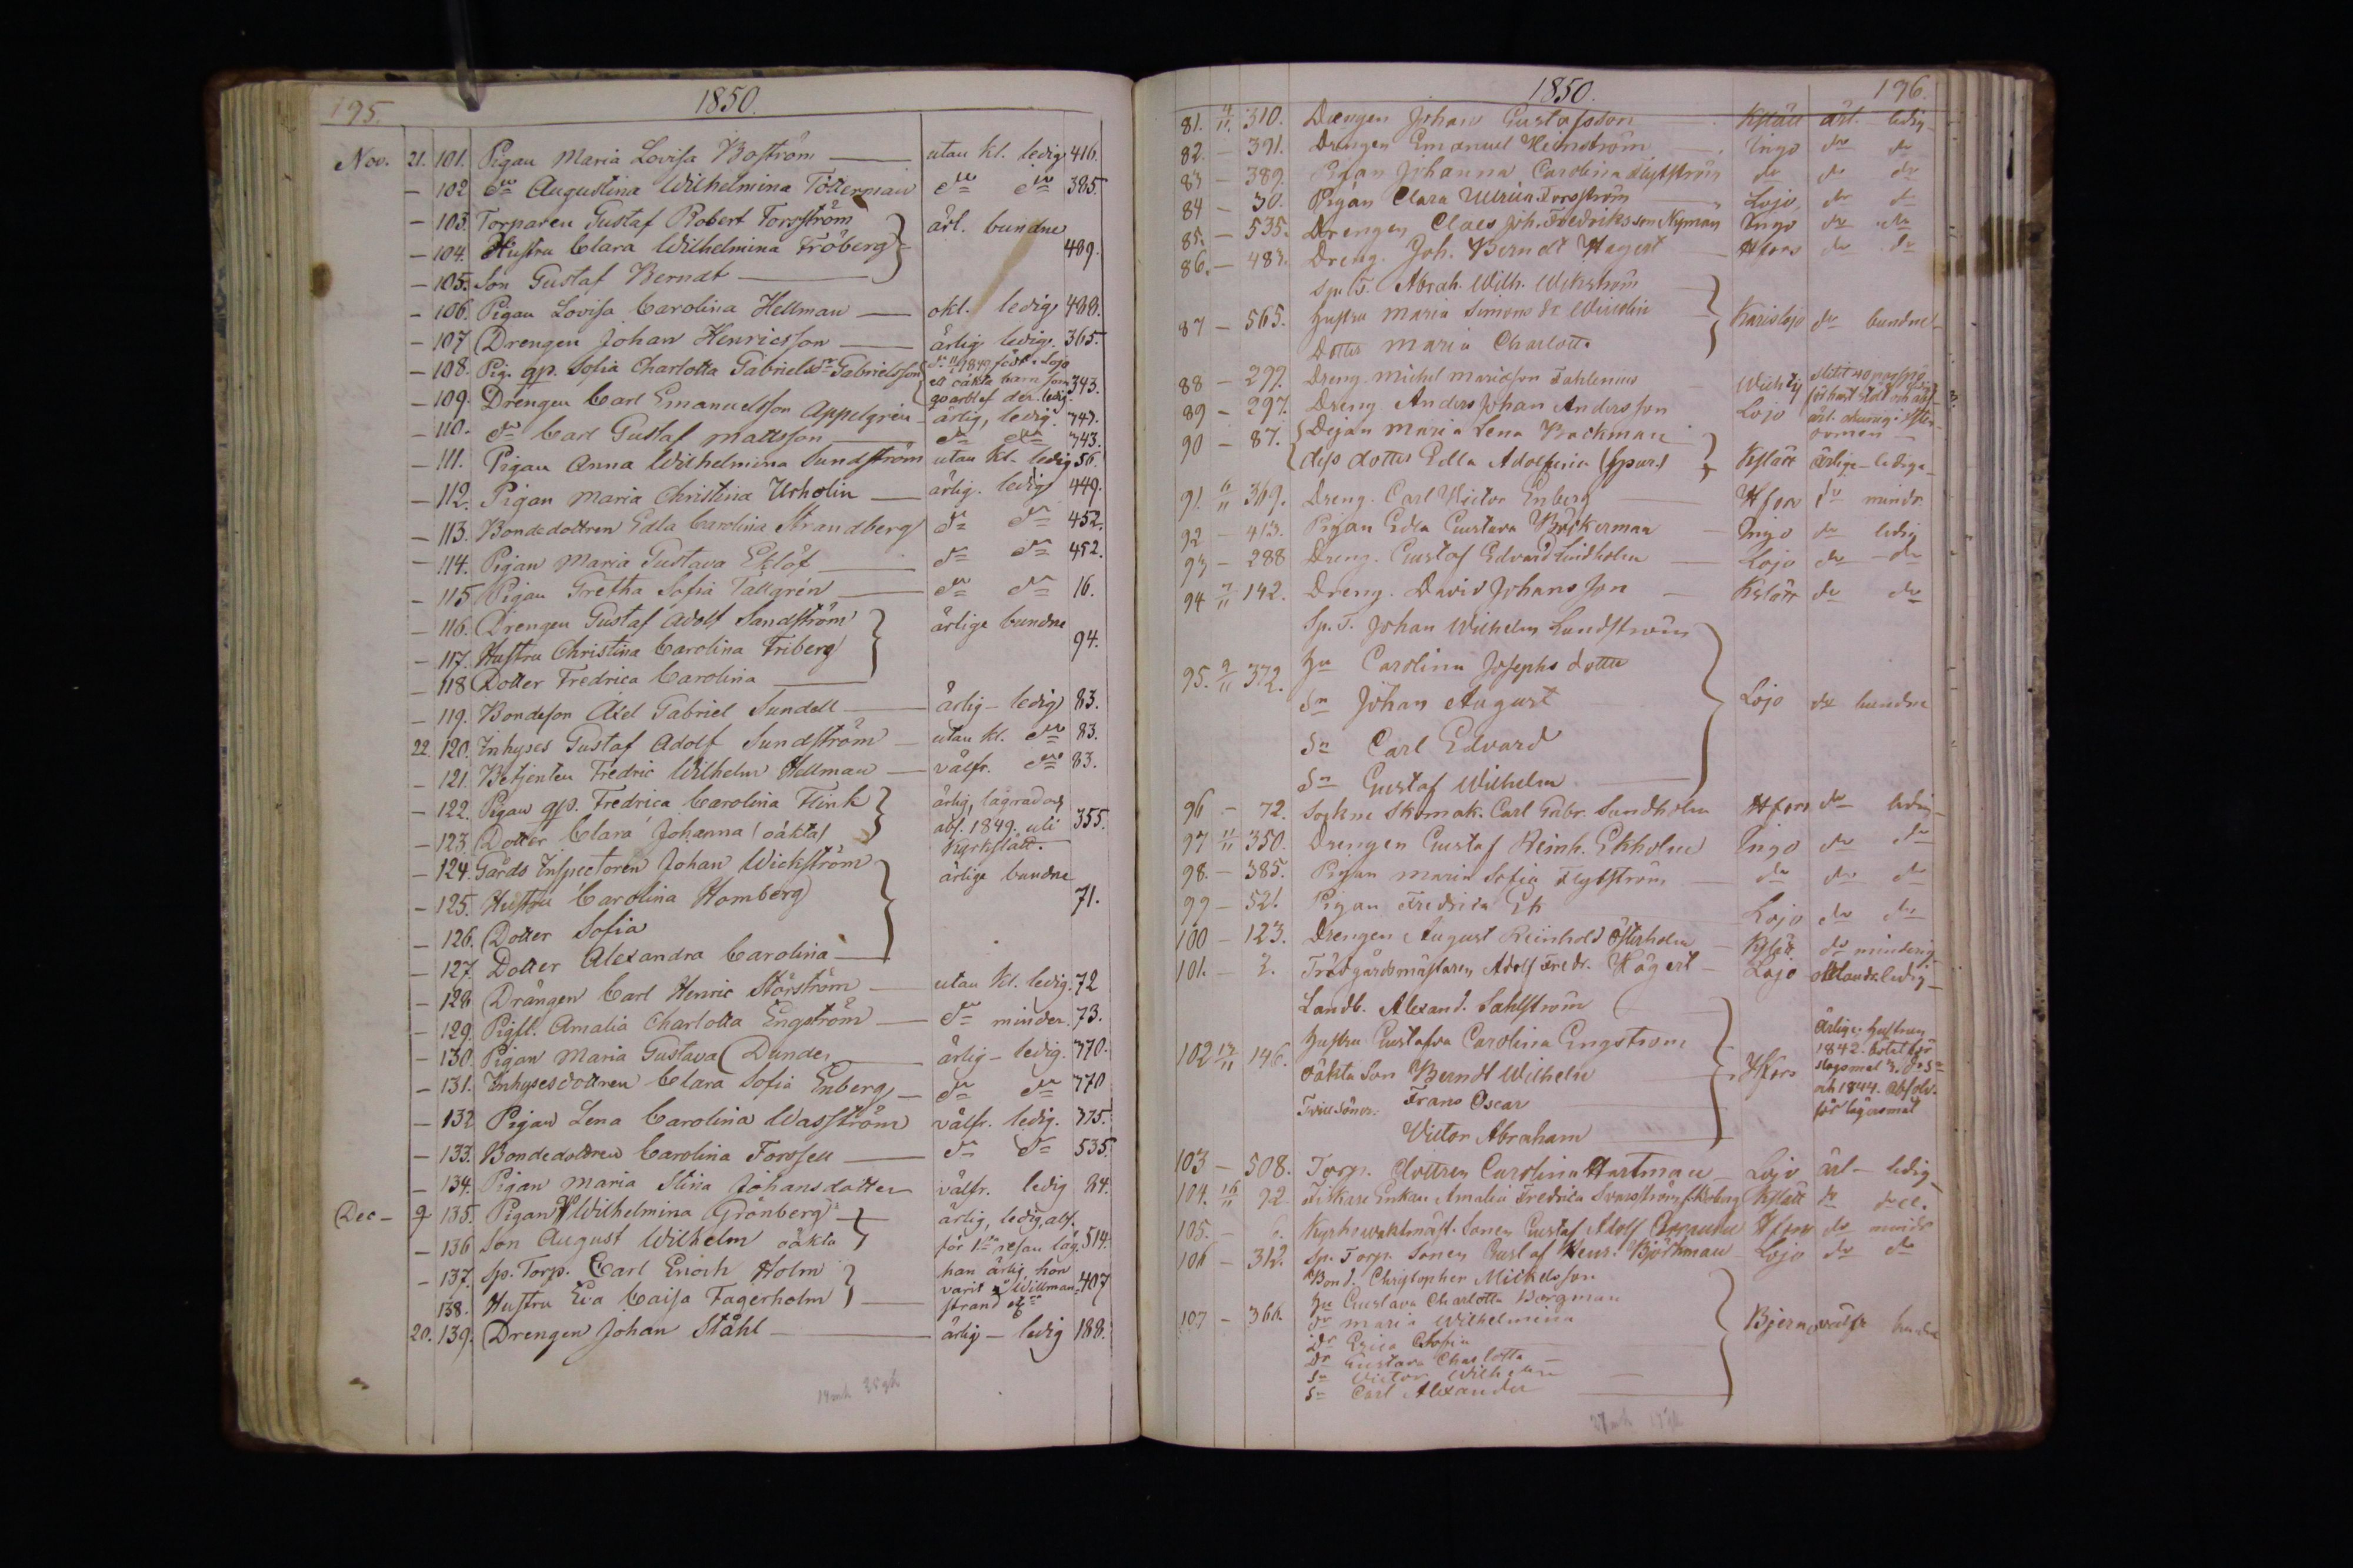 195.
1850.
Nov. 21. 101. Pigan Maria Lovisa Boström — utan kl. ledig 416.
— 102 dn Augustina Wilhelmina Tötterman dn dn 385.
— 103. Torparen Gustaf Robert Forsström ärl. bundne
— 104. Hustru Clara Wilhelmina Fröberg 489.
— 105. Son Gustaf Berndt —
— 106. Pigan Lovisa Carolina Hellman — okl. ledig 488.
— 107 Drengen Johan Henricsson — ärlig ledig. 365.
— 108. Pig. qp. Sofia Charlotta Gabrielsdr Gabrielsson 1849 född i Lojo
ett oäkta barn som 343.
— 109. Drengen Carl Emanuelsson Appelgrén — ärlig, ledig. 747.
— 110. dn Carl Gustaf Mattsson — dn dn 743.
— 111. Pigan Anna Wilhelmina Sundström utan kl. ledig 56.
— 112. Pigan Maria Christina Urholin — ärlig. ledig 449.
— 113. Bondedottren Edla Carolina Strandberg dn dn 452.
— 114. Pigan Maria Gustava Eklöf — dn dn 452.
— 115 Pigan Gretha Sofia Tallgrén — dn dn 16.
— 116. Drengen Gustaf Adolf Sandström ärlige bundne
— 117. Hustru Christina Carolina Friberg 94.
— 118 Dotter Fredrica Carolina —
— 119. Bondeson Axel Gabriel Sundell — ärlig — ledig 83.
22. 120. Inhyses Gustaf Adolf Sundström — utan kl. dn 83.
— 121. Betjenten Fredric Wilhelm Hellman — välfr. dn 83.
— 122. Pigan qp. Fredrica Carolina Flink ärlig, lägrad och
— 123. Dotter Clara Johanna (oäkta) abs. 1849. uti 355.
Kyrkslätt.
— 124. Gårds Inspectoren Johan Wickström ärlige bundne
— 125. Hustru Carolina Homberg 71.
— 126. Dotter Sofia
— 127. Dotter Alexandra Carolina —
— 128. Drängen Carl Henric Störström — utan kl. ledig. 72
— 129. Pigfl. Amalia Charlotta Engström — dn minder. 73.
— 130. Pigan Maria Gustava Dunder — ärlig — ledig. 770.
— 131. Inhysesdottren Clara Sofia Enberg — dn dn 770
— 132 Pigan Lena Carolina Wasström välfr. ledig. 375.
— 133. Bondedottren Carolina Forssell — dn dn 535.
— 134. Pigan Maria Stina Johansdotter välfr. ledig 84.
Dec — 9 135. Pigan Wilhelmina Grönberg ärlig, ledig, abs.
— 136 Son August Wilhelm oäkta för 1sta resan läg. 514.
— 137. Sp. Torp. Carl Enoch Holm han ärlig hon
138. Hustru Eva Caisa Fagerholm — varit Willman- 407
strand
20. 139. Drengen Johan Ståhl — ärlig — ledig 188.
1850. 196.
81. 4/11 310. Drengen Johan Gustafsson — Kslätt ärl. ledig
82. — 391. Drengen Emanuel Heinström — Ingo dn dn
83 — 389. Pigan Johanna Carolina Flytström dn dn dn
84 — 30. Pigan Clara Ulrica Forsström — Lojo, dn dn
85. — 535. Drengen Claes Joh. Fredriksson Nyman Ingo dn dn
86. — 483. Dreng. Joh. Berndt Hagert — Hfors dn dn
Sp. T. Abrah. Wilh. Wikström
87 — 565. Hustru Maria Simons dr Karislojo dn bundne
Dotter Maria Charlotta
88 — 299. Dreng. Michel Maridson Fahlenius Wichty
89 — 297. Dreng Anders Johan Andersson Lojo
90 — 87. Dejan Maria Lena Backman
dess dotter Edla Adolfina (spur.) Kslätt ärlige — lediga
91. 6/11 369. Dreng. Carl Victor Enberg — Hfors dn mindr.
92 — 413. Pigan Edla Gustava Böckerman — Ingo dn ledig
93 — 288 Dreng. Gustaf Edvard Lindholm — Lojo dn — dn
94 7/11 142. Dreng. David Johansson — Kslätt dn dn
Sp. T. Johan Wilhelm Lundström
95. 9/11 372. Hu Carolina Josephs dotter
Sn Johan August Lojo dn bundne
Sn Carl Edvard
Sn Gustaf Wilhelm —
96 — 72. Sockne Skomak. Carl Gabr. Sundholm Hfors dn ledig
97 11/11 350. Drengen Gustaf Reinh. Ekholm Ingo dn dn
98. — 385. Pigan Maria Sofia Flytström — dn dn dn
99 — 521. Pigan Fredrica Ek Lojo dn dn
100 — 123. Drengen August Reinhold Österholm — Kslätt dn minderig
101. — 2. Trädgårdsmästaren Adolf Fredr. Hägert — Lojo ledig
Landb. Alexand. Sahlström
Hustru Gustafva Carolina Engström ärlige. hustrun
102 13/11 146. Oäkta Son Berndt Wilhelm — Hfors 1842. bötat för
slagsmål
och 1844. absolv.
Trill. Söner. Frans Oscar för lägersmål
Victor Abraham
103 — 508. Torp. dottren Carolina Hartman — Lojo ärl — ledig
104. 16/11 92 Fiskare Enkan Amalia Fredrica Kslätt dn
105. — 6. Kyrkowaktmäst. Sonen Gustaf Adolf Hfors dn mindr
106 — 312. Sp. Torp. Sonen Gustaf Henr. Björkman — Lojo dn dn
Bond. Christopher Mickelsson
Hu Gustava Charlotta Borgman
107 — 366. Dr Maria Wilhelmina Bjerno välfr bundne
Dr Erica Sofia
Dr Gustava Charlotta —
Sn Victor Wilhelm —
Sn Carl Alexander